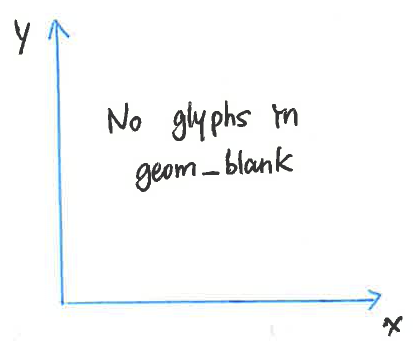 y
No glyphs in
geom_blank
x